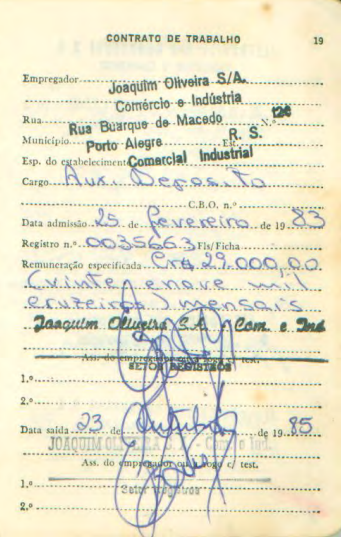 CONTRATO DE TRABALHO 19
Empregador Joaquim Oliveira S/A.
Comércio e Indústria
Rua Rua Buarque de Macedo N.º 126
Município Porto Alegre Est. R. S.
Esp. do estabelecimento Comercial Industrial
Cargo Aux. Deposito
C.B.O. n.º
Data admissão 25 de fevereiro de 19 83
Registro n.º 0035663 Fls/Ficha
Remuneração especificada Cr$ 29.000,00
(vinte e nove mil
cruzeiros) mensais
Joaquim Oliveira S.A. Com. e Ind
Ass. do empregador ou a rogo c/ test.
SETOR REGISTROS
1.º
2.º
Data saída 23 de outubro de 19 85
JOAQUIM OLIVEIRA S.A. Com. e Ind.
Ass. do empregador ou a rogo c/ test.
1.º Setor Registros
2.º